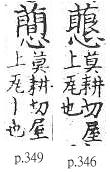 莫耕切屋
上瓦也
p.346
莫耕切屋
上瓦〡也
p.349